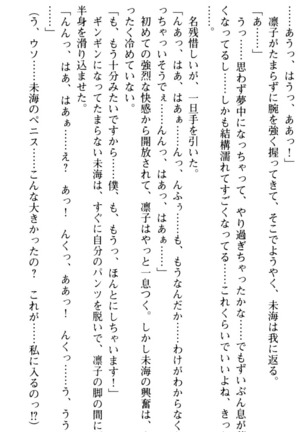 ……あうっ、はうっ、ああっ！
凛子がたまらずに腕を強く握ってきて、そこでようやく、未海は我に返る。
「あ……」
うっ……思わず夢中になっちゃって、やり過ぎちゃったかな……でもずいぶん息が
くなってるし……しかも結構濡れてすごくなってる……これくらいでいいよね、きっ
名残惜しいが、一旦手を引いた。
「んあっ、はぁ、はぁぁ……んっ、んふぅ……も、もうなんだか……わけがわからなく
っちゃいそうでぇ……んんっ、はぁっ、はぁぁ……」
初めての強烈な快感から開放されて、凛子はやっと一息つく。しかし未海の興奮は、
ったく冷めていない。
「も、もう十分みたいですから……僕、も、もうっ、ほんとにしちゃいます！」
ギンギンになってたまらない未海は、すぐに自分のパンツを脱いで、凛子の脚の間に
半身を滑り込ませた。
「んんっ、はぁ、はぁぁ……え？　あっ！　んくっ、ああっ！　んくっ……う、うう
（う、ウソ……未海のペニス……こんな大きかったの？　これが……私に入るのっ!?）